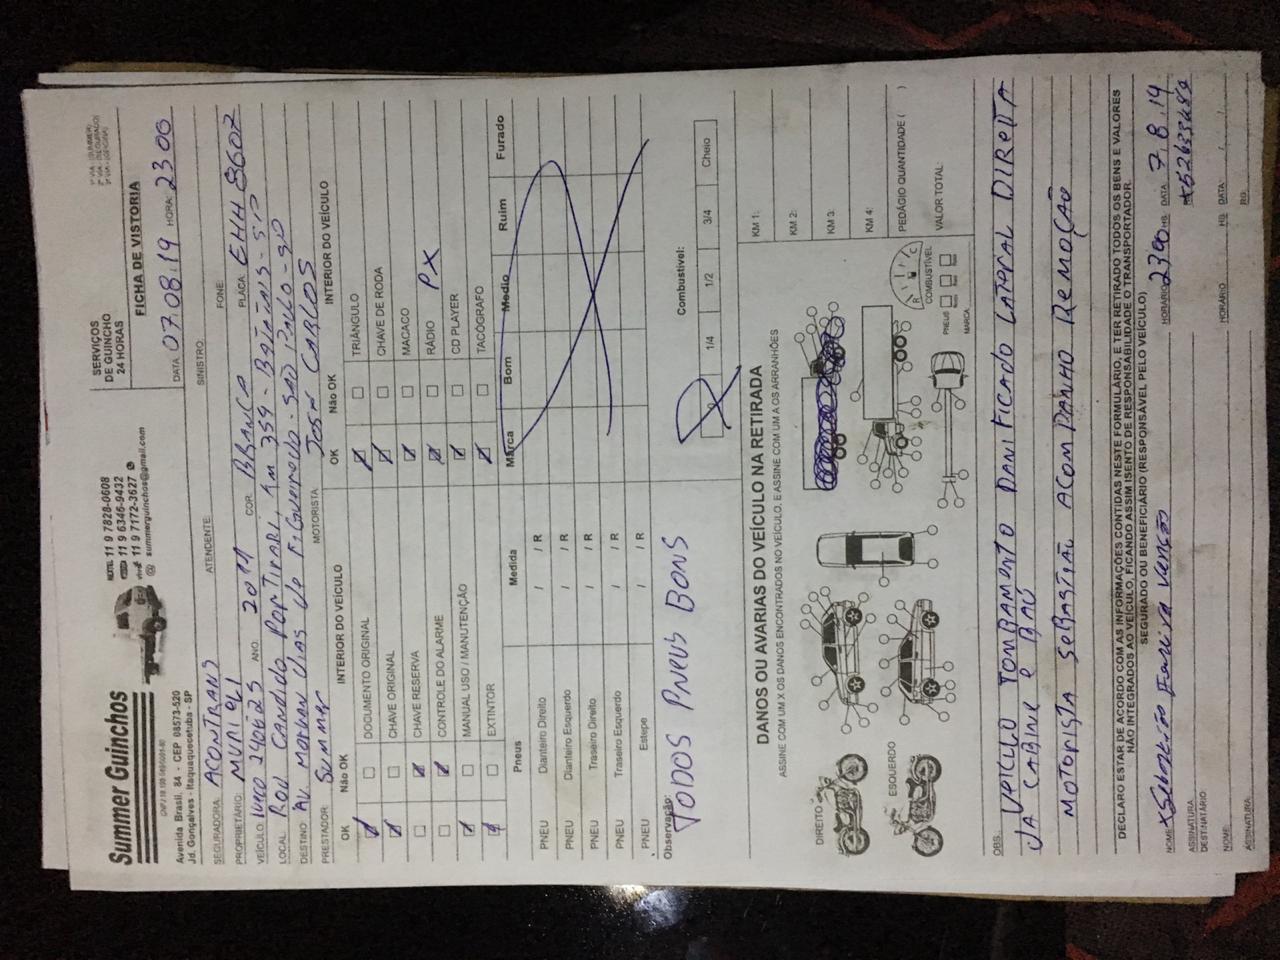 Summer Guinchos
Avenida Brasil, 84 - CEP 08573-520
Jd. Gonçalves - Itaquaquecetuba - SP
11 9 7828-0608
11 9 6346-9432
11 9 7172-3627
summerguinchos@gmail.com
SERVIÇOS
DE GUINCHO
24 HORAS
FICHA DE VISTORIA
DATA 07.08.19 HORA: 23 00
SEGURADORA: ACONTRANS ATENDENTE: SINISTRO:
PROPRIETÁRIO: MURIEL FONE:
VEÍCULO: Iveco 240E25 ANO: 2011 COR: BRANCA PLACA: EHH 8607
LOCAL: Rod CANDIDO PORTINARI, Km 359 - BATATAIS - SP
DESTINO: AV. MORVAN DIAS de FIGUEIREDO - SÃO PAULO - SP
PRESTADOR: Summer MOTORISTA: JOSÉ CARLOS
OK Não OK INTERIOR DO VEÍCULO OK Não OK INTERIOR DO VEÍCULO
DOCUMENTO ORIGINAL TRIÂNGULO
CHAVE ORIGINAL CHAVE DE RODA
CHAVE RESERVA MACACO
CONTROLE DO ALARME RÁDIO PX
MANUAL USO / MANUTENÇÃO CD PLAYER
EXTINTOR TACÓGRAFO
Pneus Medida Marca Bom Medio Ruim Furado
PNEU Dianteiro Direito / / R
PNEU Dianteiro Esquerdo / / R
PNEU Traseiro Direito / / R
PNEU Traseiro Esquerdo / / R
PNEU Estepe / / R
Observação: Combustível:
TODOS PNEUS BONS
1/4 1/2 3/4 Cheio
DANOS OU AVARIAS DO VEÍCULO NA RETIRADA
ASSINE COM UM X OS DANOS ENCONTRADOS NO VEÍCULO, E ASSINE COM UM A OS ARRANHÕES
DIREITO
ESQUERDO
COMBUSTÍVEL
PNEUS
MARCA
KM 1:
KM 2:
KM 3:
KM 4:
PEDÁGIO QUANTIDADE ( )
VALOR TOTAL:
OBS: VEICULO TOMBAMENTO DANIFICADO LATERAL DIREITA
DA CABINE E BAÚ
MOTORISTA SEBASTIÃO ACOMPANHO REMOÇÃO
DECLARO ESTAR DE ACORDO COM AS INFORMAÇÕES CONTIDAS NESTE FORMULÁRIO, E TER RETIRADO TODOS OS BENS E VALORES
NÃO INTEGRADOS AO VEÍCULO, FICANDO ASSIM ISENTO DE RESPONSABILIDADE O TRANSPORTADOR.
SEGURADO OU BENEFICIÁRIO (RESPONSÁVEL PELO VEÍCULO)
NOME: Sebastião HORÁRIO: 2300 HS. DATA: 7.8.19
ASSINATURA:
DESTINATÁRIO
NOME: HORÁRIO HS. DATA:
ASSINATURA: RG: